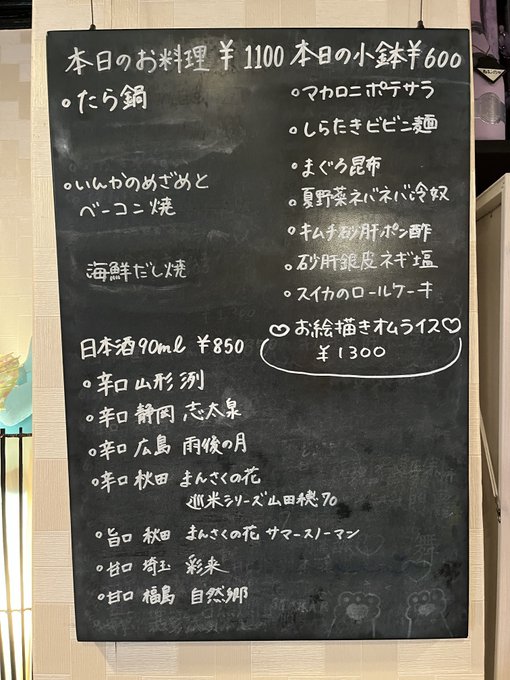 本日のお料理 ¥1100
○たら鍋
○いんかのめざめと
ベーコン焼
海鮮だし焼
本日の小鉢¥600
○マカロニポテサラ
○しらたきビビン麺
○まぐろ昆布
○夏野菜ネバネバ冷奴
○キムチ砂肝ポン酢
○砂肝銀皮ネギ塩
○スイカのロールケーキ
♡お絵描きオムライス♡
¥1300
日本酒90ml ¥850
○辛口 山形 洌
○辛口 静岡 志太泉
○辛口 広島 雨後の月
○辛口 秋田 まんさくの花
巡米シリーズ山田穂70
○旨口 秋田 まんさくの花 サマースノーマン
○甘口 埼玉 彩来
○甘口 福島 自然郷